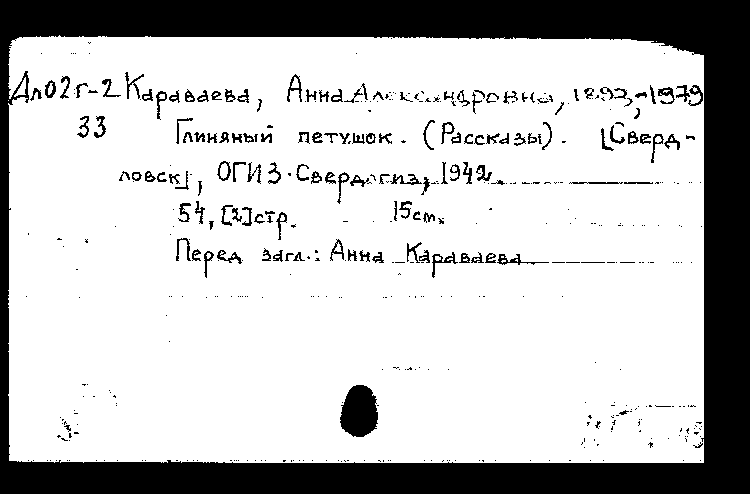 Дл02г-2 Караваева, Анна Александровна, 1893-1979
33 Глиняный петушок. (Рассказы). [Сверд-
ловск], ОГИЗ·Свердлгиз, 1942.
54, [2] стр. 15 см.
Перед загл.: Анна Караваева